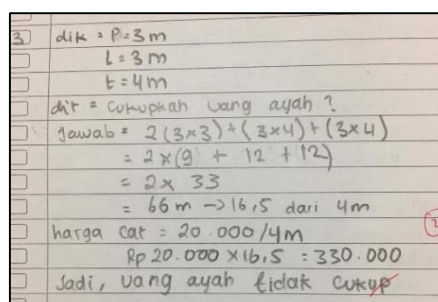 3 dik = P = 3 m
l = 3 m
t = 4 m
dit = Cukupkah uang ayah ?
Jawab = 2(3×3) + (3×4) + (3×4)
= 2 × (9 + 12 + 12)
= 2 × 33
= 66 m → 16,5 dari 4m
harga cat = 20.000/4m
Rp 20.000 × 16,5 = 330.000
Jadi, uang ayah tidak cukup